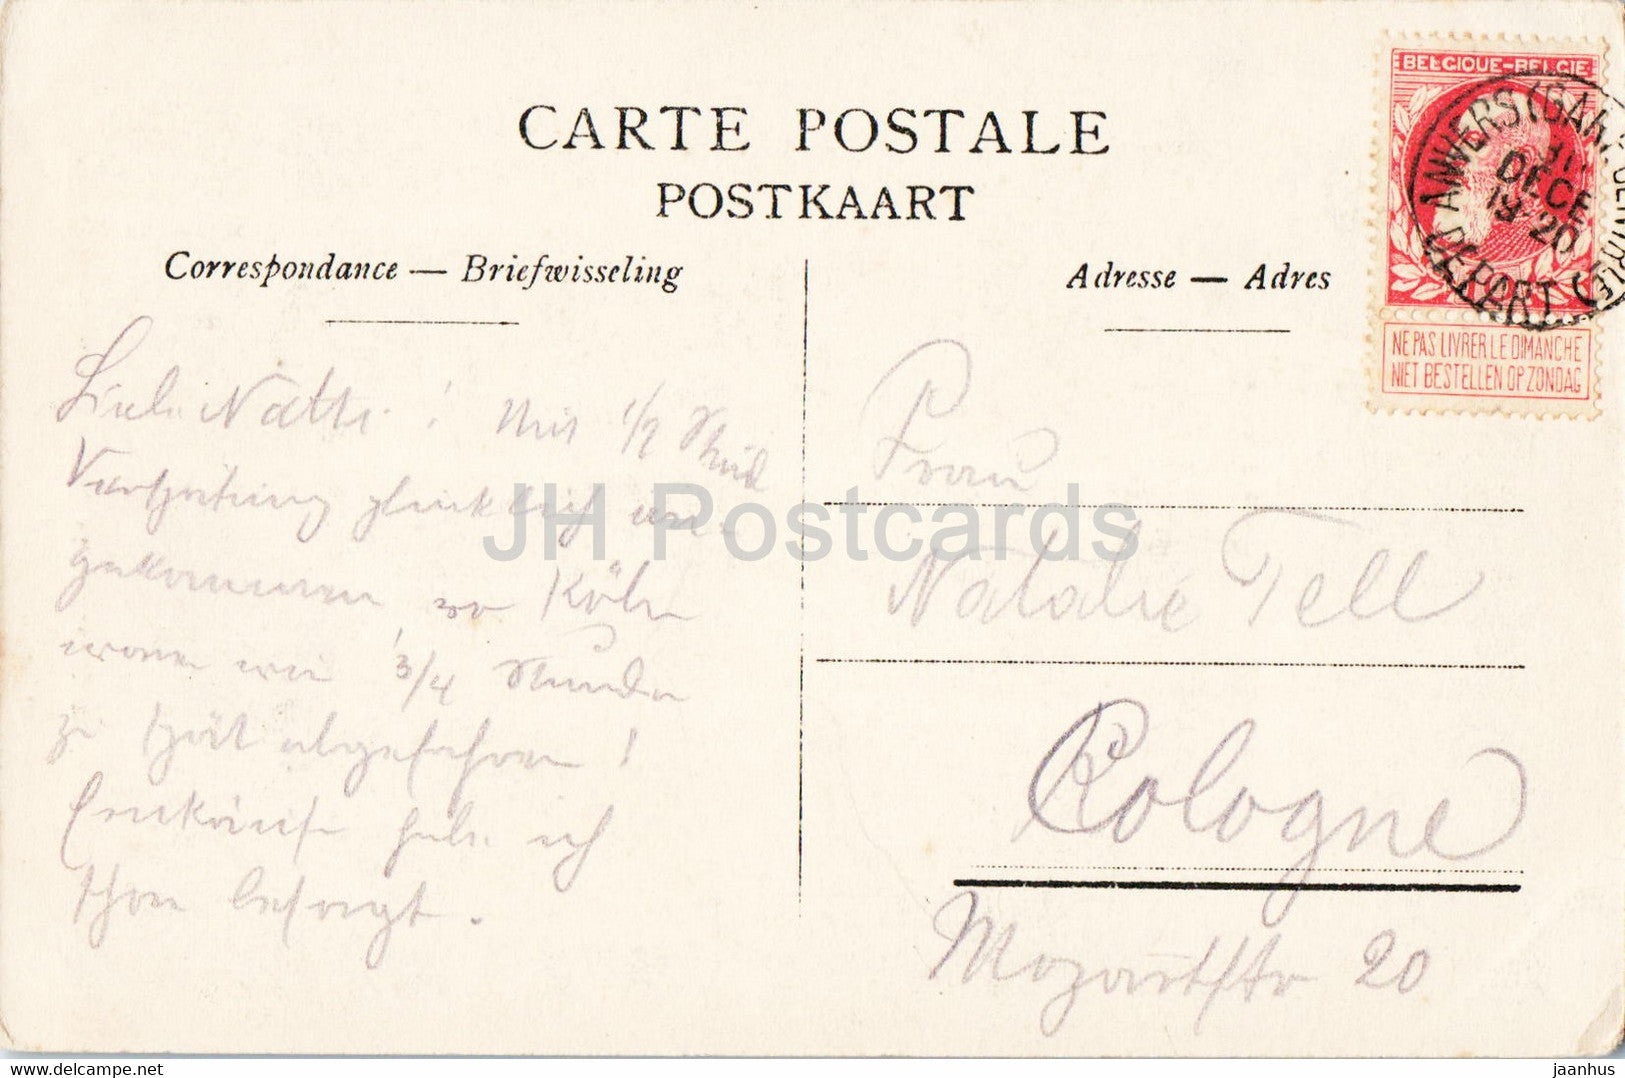 BELGIQUE-BELGIE
ANVERS (GARE CENTRALE)
DECE
19-20
DEPART
NE PAS LIVRER LE DIMANCHE
NIET BESTELLEN OP ZONDAG
CARTE POSTALE
POSTKAART
Correspondance — Briefwisseling
Adresse — Adres
Liebe Natti! Mit 1/2 Stünd
Verspätung glücklich an-
gekommen, wo Köln
waren wir 3/4 Stunden
zu spät abgefahren!
Einkäufe habe ich
schon besorgt.
Frau
Natalie Tell
Cologne
Mozartstr 20
JH Postcards
jaanhus